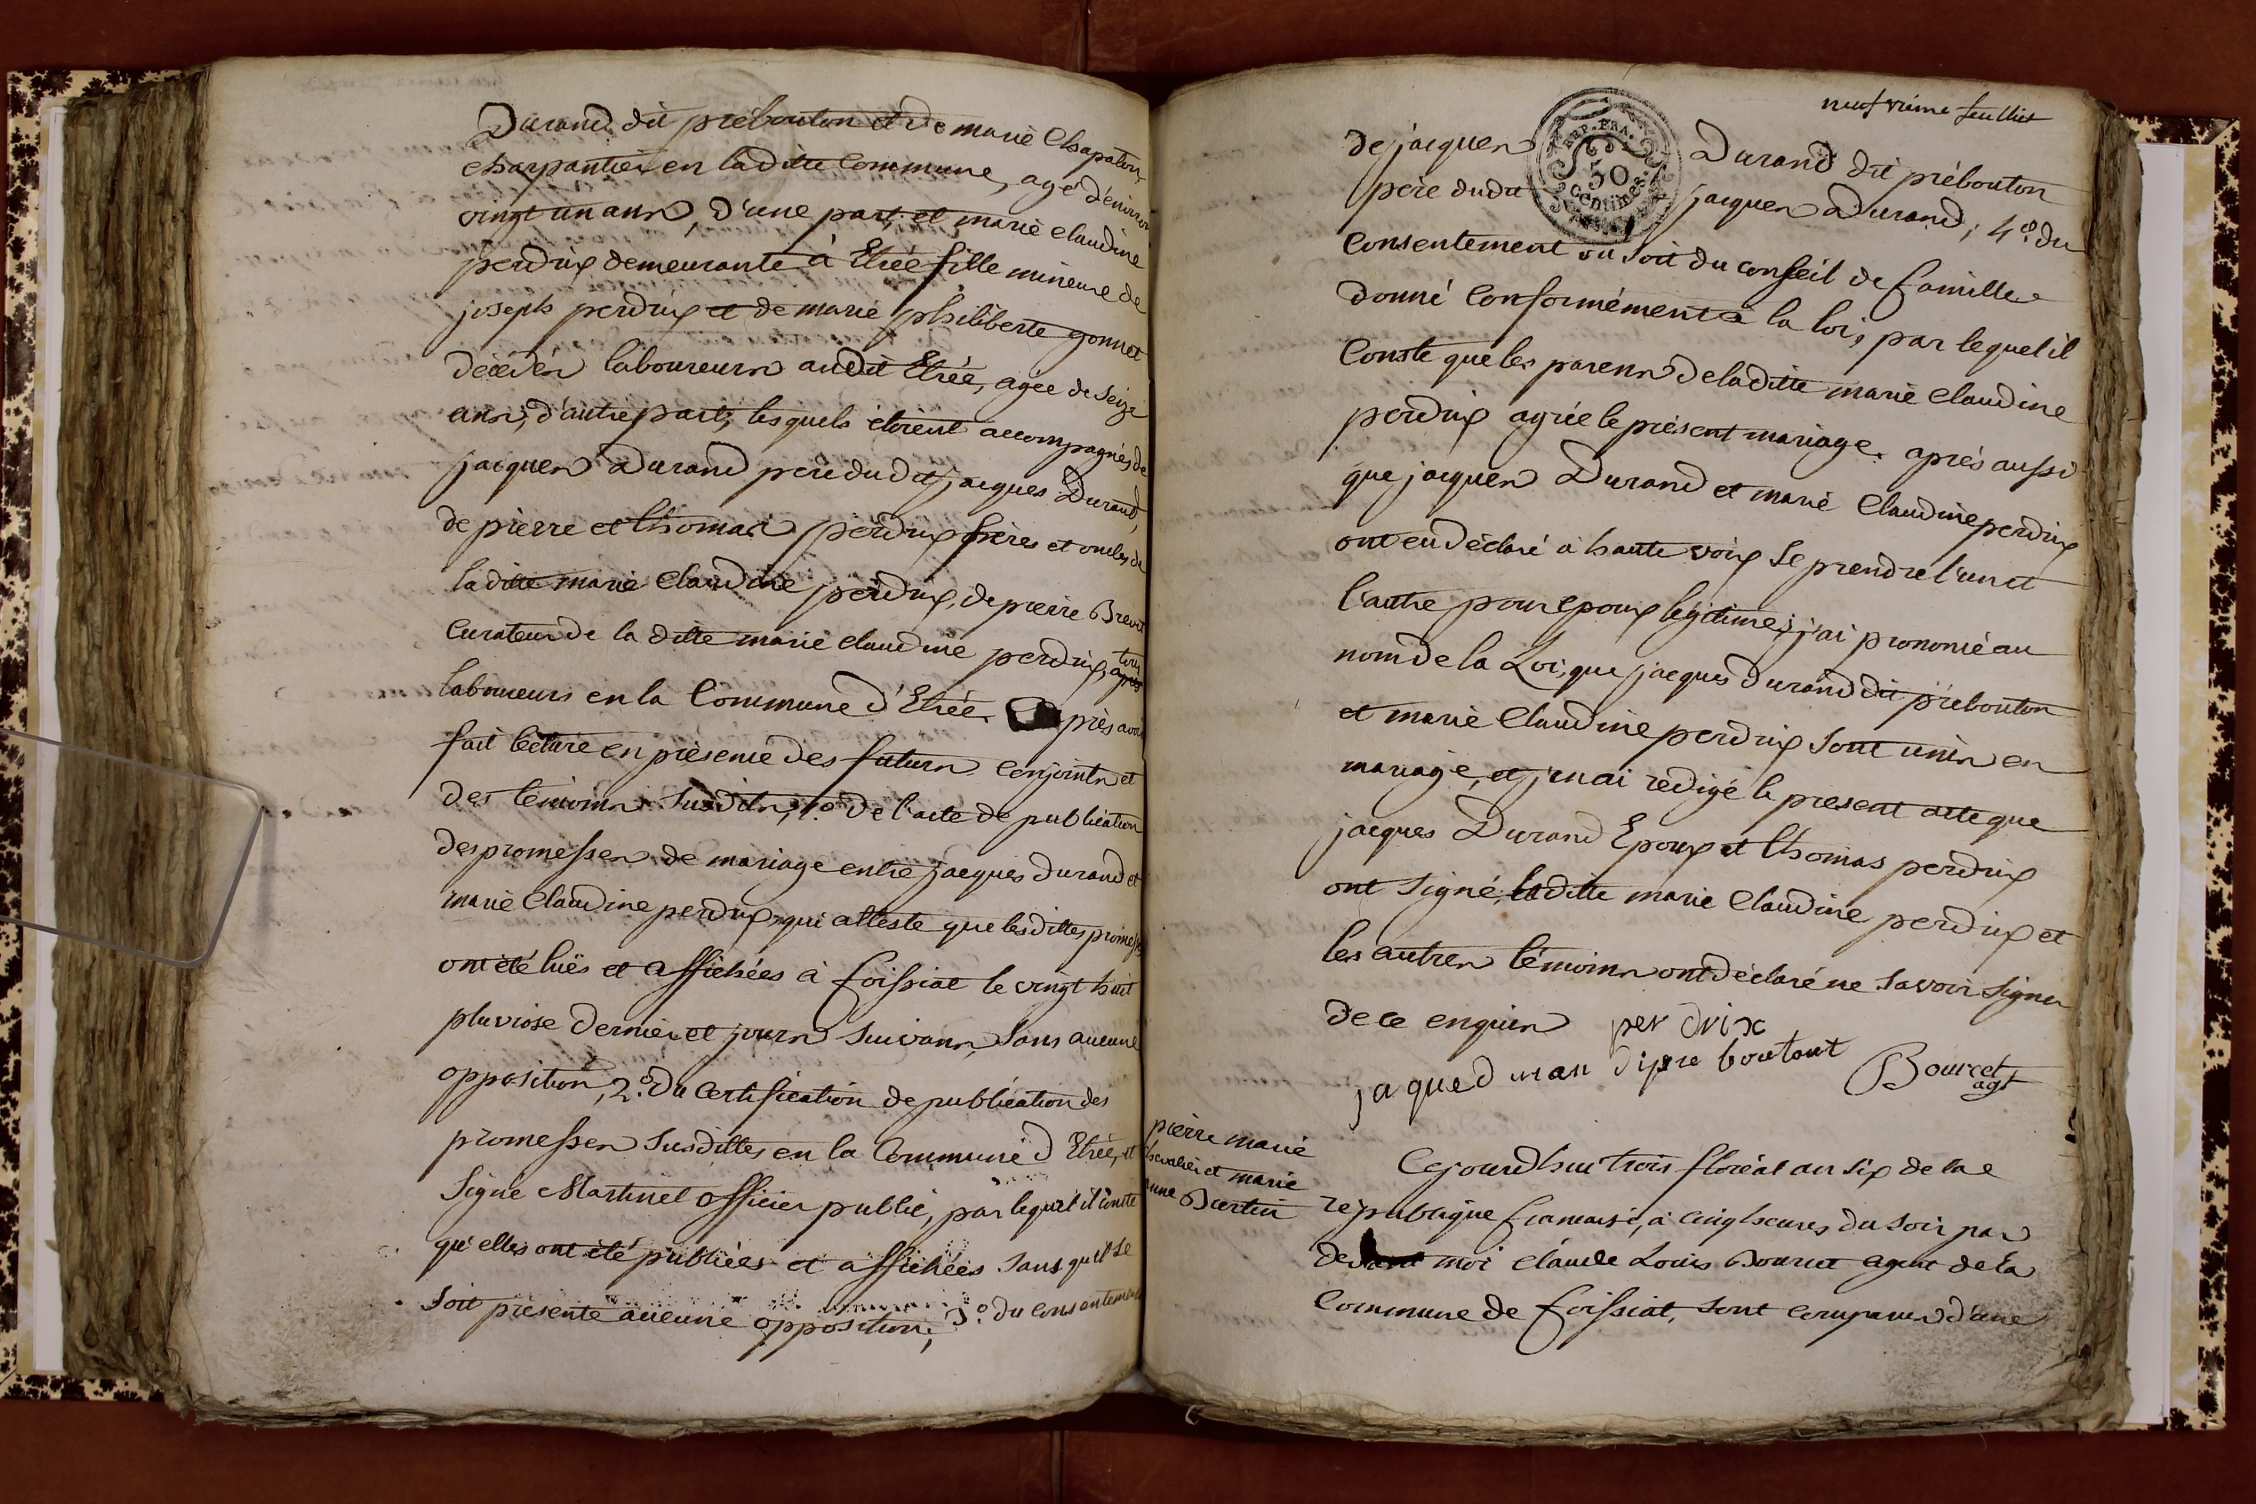 Durand dit prébouton et de marie Chapaton,
charpantier en laditte Commune, agé d'environ
vingt un ans, d'une part, et marie claudine
perdrix demeurante à Etrée fille mineure de
joseph perdrix et de marie philiberte gonnet
décédés laboureurs audit Etrée, agée de seize
ans, d'autre part, lesquels étoient accompagnés de
jacques Durand pere dudit jacques Durand,
de pierre et thomas perdrix frères et oncles de
laditte marie claudine perdrix, de pierre Brevet
curateur de la ditte marie claudine perdrix, tous
laboureurs en la Commune d'Etrée. près avoir
fait lecture en présence des futurs conjoints et
des témoins susdits, 1.º de l'acte de publication
des promesses de mariage entre jacques durand et
marie claudine perdrix, qui atteste que lesdittes promesses
ont été luës et affichées à foissiat le vingt huit
pluviose dernier et jours suivans, sans aucune
opposition, 2.º du certification de publication des
promesses susdittes en la Commune d'Etrée, et
signé Martinet officier public, par lequel il conste
qu'elles ont été publiées et affichées sans qu'il se
soit présenté aucune opposition; 3.º du consentement
neufvième feulliet
REP. FRA.
50
centimes.
de jacques Durand dit prébouton
père dudit jacques Durand; 4.º du
consentement ou soit du conseil de famille
donné conformément à la loi, par lequel il
conste que les parens de laditte marie claudine
perdrix agrée le présent mariage. après aussi
que jacques Durand et marie claudine perdrix
ont eu déclaré à haute voix se prendre l'un et
l'autre pour epoux légitimes, j'ai prononcé au
nom de la Loi, que jacques durand dit prébouton
et marie claudine perdrix sont unis en
mariage, et j'en ai redigé le présent acte que
jacques Durand Epoux et thomas perdrix
ont signé, laditte marie claudine perdrix et
les autres témoins ont déclaré ne savoir signer
de ce enquis
per drix
jaque d uran dipre boutont
Bourcet
agt
pierre marie
chevalier et marie
anne Bertin
Cejourdhui trois floréal an six de la
république francaise, à cinq heures du soir par
devant moi claude Louis Bourcet agent de la
Commune de foissiat, sont comparus d'une